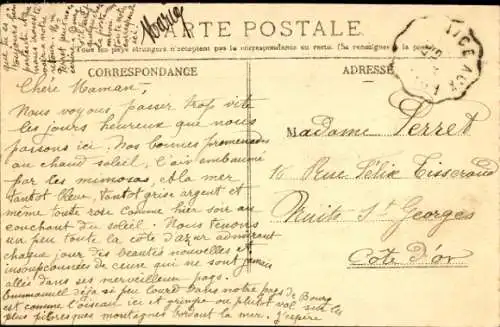 Marie
CARTE POSTALE
Tous les pays étrangers n'acceptent pas la correspondance au recto. (Se renseigner à la poste)
CORRESPONDANCE
ADRESSE
Chère Maman,
Nous voyons passer trop vite
les jours heureux que nous
passons ici. Nos bonnes promenades
au chaud soleil, l'air embaumé
par les mimosas, la mer
tantôt bleue, tantôt grise argent et
même toute rose comme hier soir au
couchant du soleil. Nous tenons
un peu toute la côte d'azur admirant
chaque jour des beautés nouvelles et
insoupçonnées de ceux qui ne sont jamais
allés dans ces merveilleux pays.
Emmanuel déjà si peu lourd dans notre pays de Bourg
est comme l'oiseau ici et grimpe ou plutôt vol sur les
plus pittoresques montagnes bordant la mer. J'espère
Madame Perret
10 Rue Félix Tisserand
Nuits-St-Georges
Côte d'or